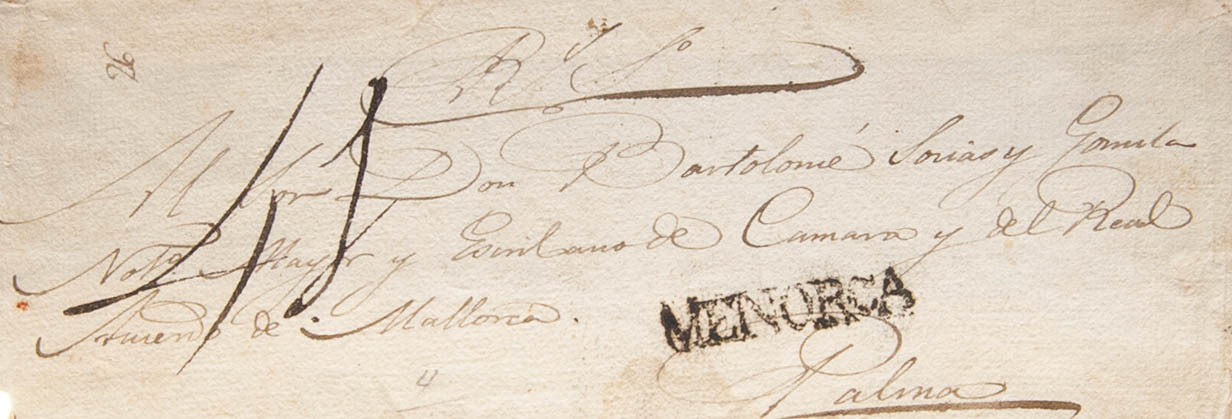 26
Rl So
Al Sor Don Bartolomé Socias y Gomila
Noto Mayor y Escribano de Camara y del Real
Acuerdo de Mallorca.
MENORCA
Palma